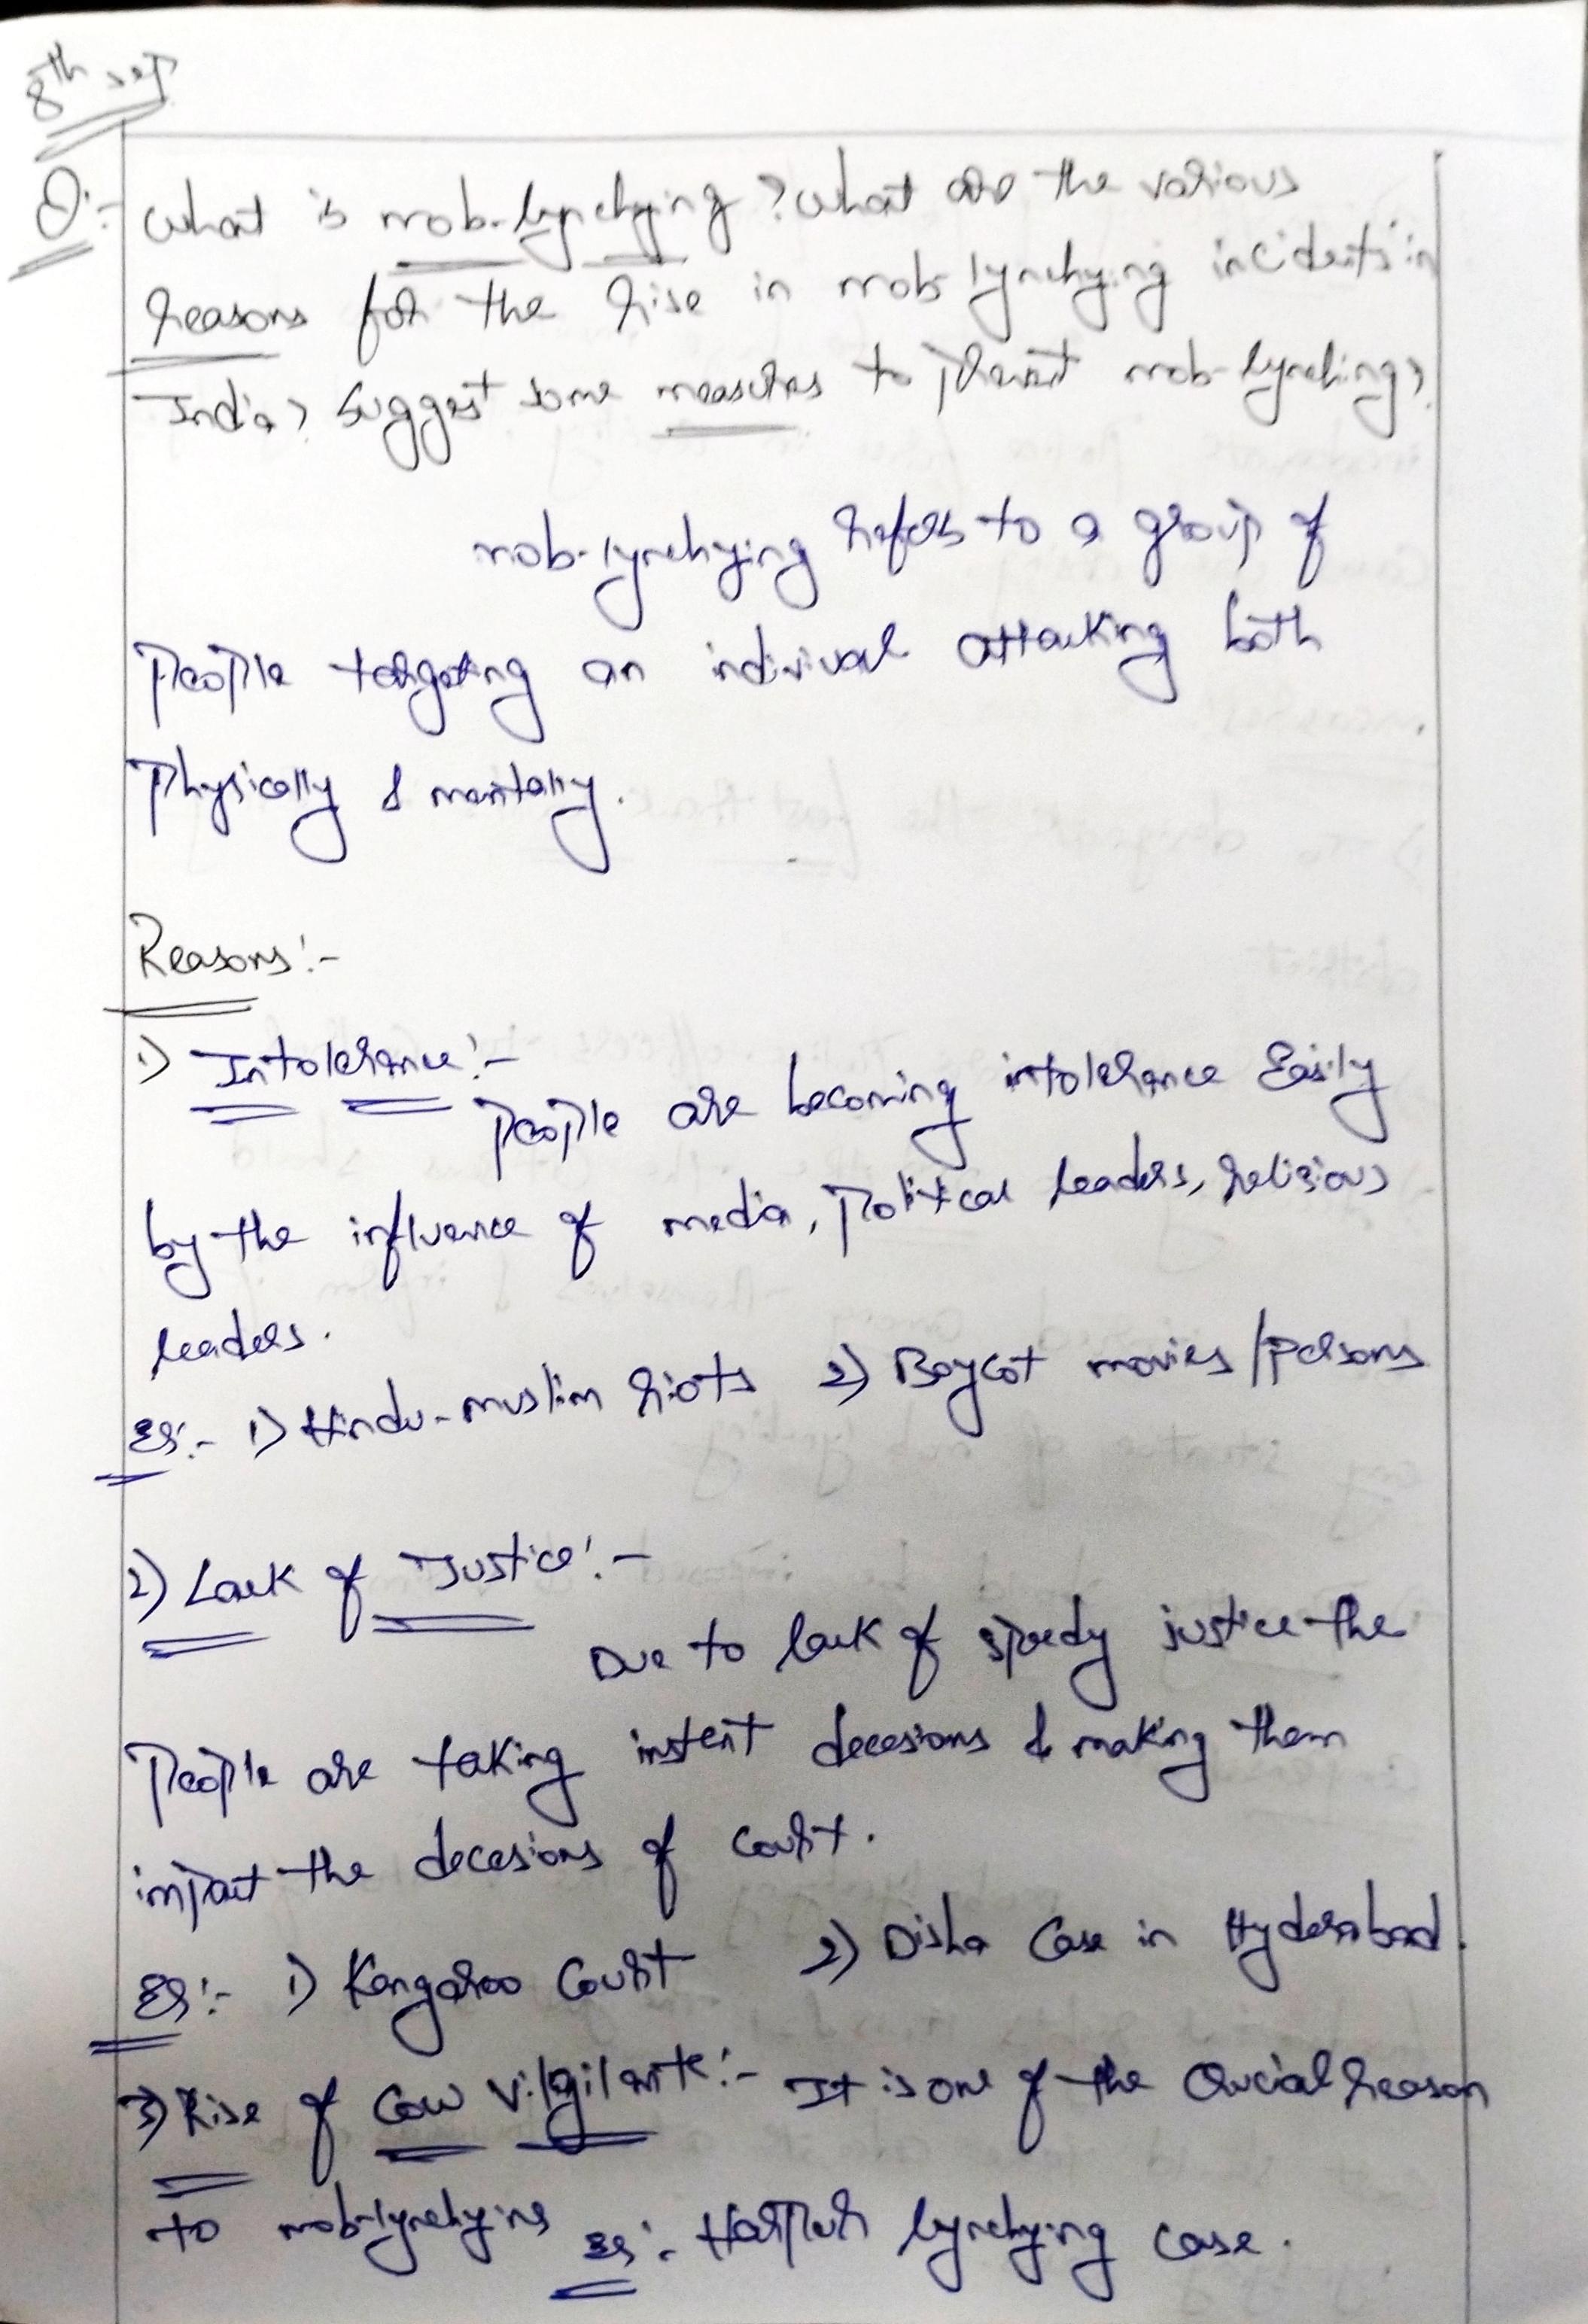 8th sep
Q:- what is mob-lynchying? what are the various
reasons for the rise in mob lynchying incidents in
India? Suggest some measures to prevent mob-lynching?
mob-lynchying refers to a group of
People targeting an indiviual attacking both
Physically & mentally.
Reasons:-
1) Intolerance:-
People are becoming intolerance Easily
by the influence of media, Political leaders, religious
leaders.
Eg:- 1) Hindu-muslim riots 2) Boycot movies/persons
2) Lack of Justice:-
Due to lack of speedy justice the
People are taking instent decesions & making them
impact the decesions of court.
Eg:- 1) Kangaroo Court 2) Disha Case in Hyderabad.
3) Rise of Cow Vilgilante:- It is one of the Crucial reason
to mob-lynchying Eg:- Harpur lynchying case.